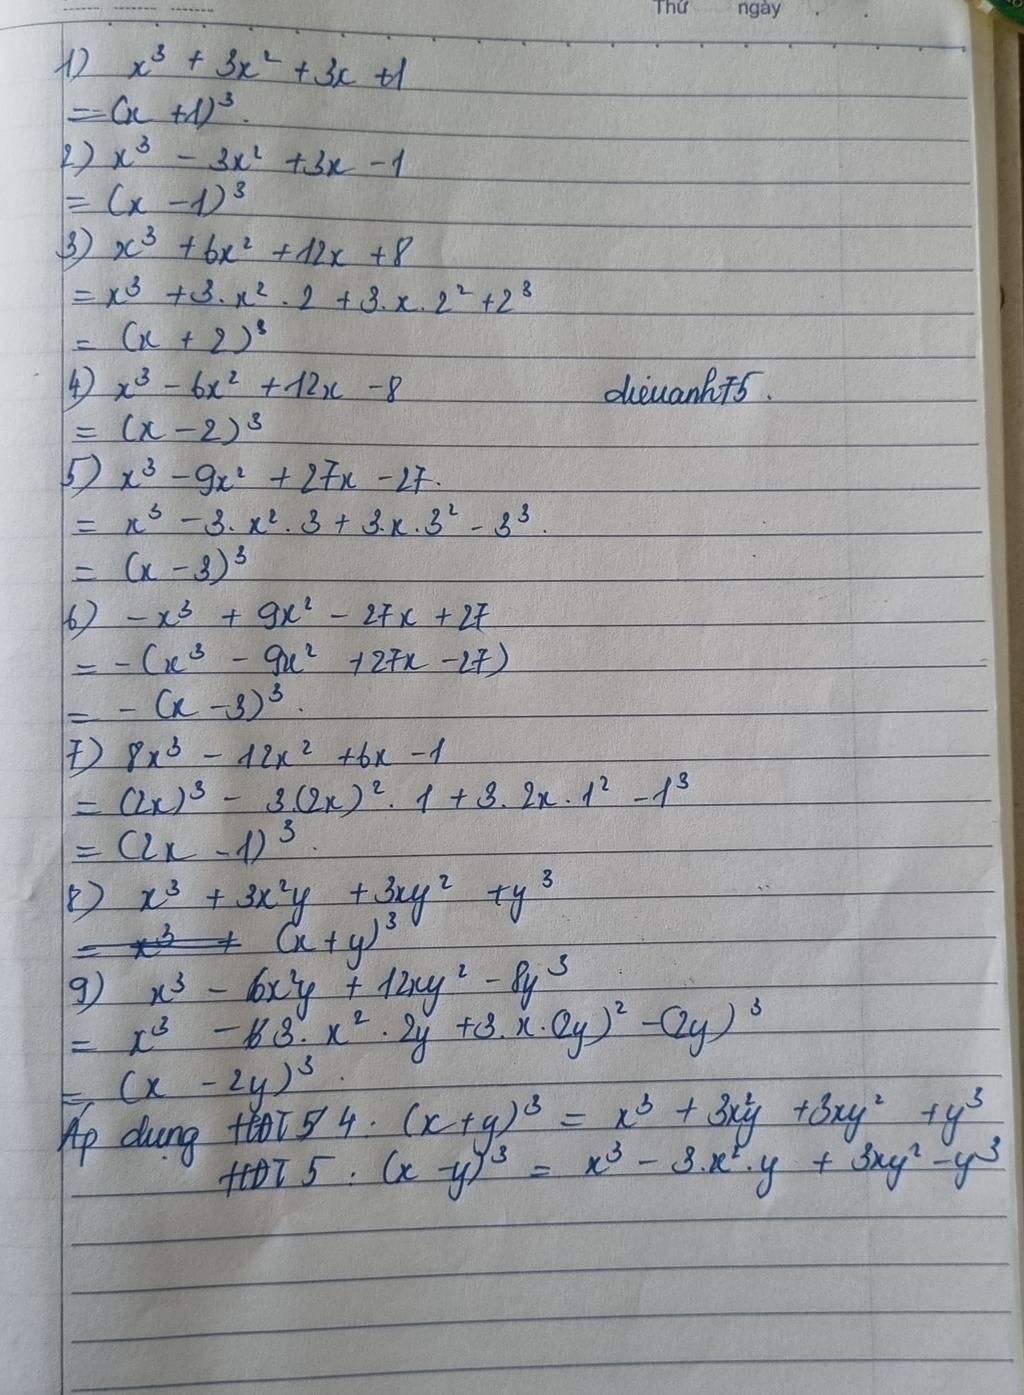 Thứ ngày
1) x³ + 3x² + 3x + 1
= (x + 1)³.
2) x³ - 3x² + 3x - 1
= (x - 1)³
3) x³ + 6x² + 12x + 8
= x³ + 3.x².2 + 3.x.2² + 2³
= (x + 2)³
4) x³ - 6x² + 12x - 8 dieuanh75.
= (x - 2)³
5) x³ - 9x² + 27x - 27.
= x³ - 3.x².3 + 3.x.3² - 3³.
= (x - 3)³
6) -x³ + 9x² - 27x + 27
= -(x³ - 9x² + 27x - 27)
= -(x - 3)³.
7) 8x³ - 12x² + 6x - 1
= (2x)³ - 3.(2x)².1 + 3.2x.1² - 1³
= (2x - 1)³.
8) x³ + 3x²y + 3xy² + y³
= x³ + (x + y)³
9) x³ - 6x²y + 12xy² - 8y³
= x³ - 3.x².2y + 3.x.(2y)² - (2y)³
= (x - 2y)³.
Áp dụng HĐT 5 4: (x + y)³ = x³ + 3x²y + 3xy² + y³
HĐT 5: (x - y)³ = x³ - 3.x².y + 3xy² - y³